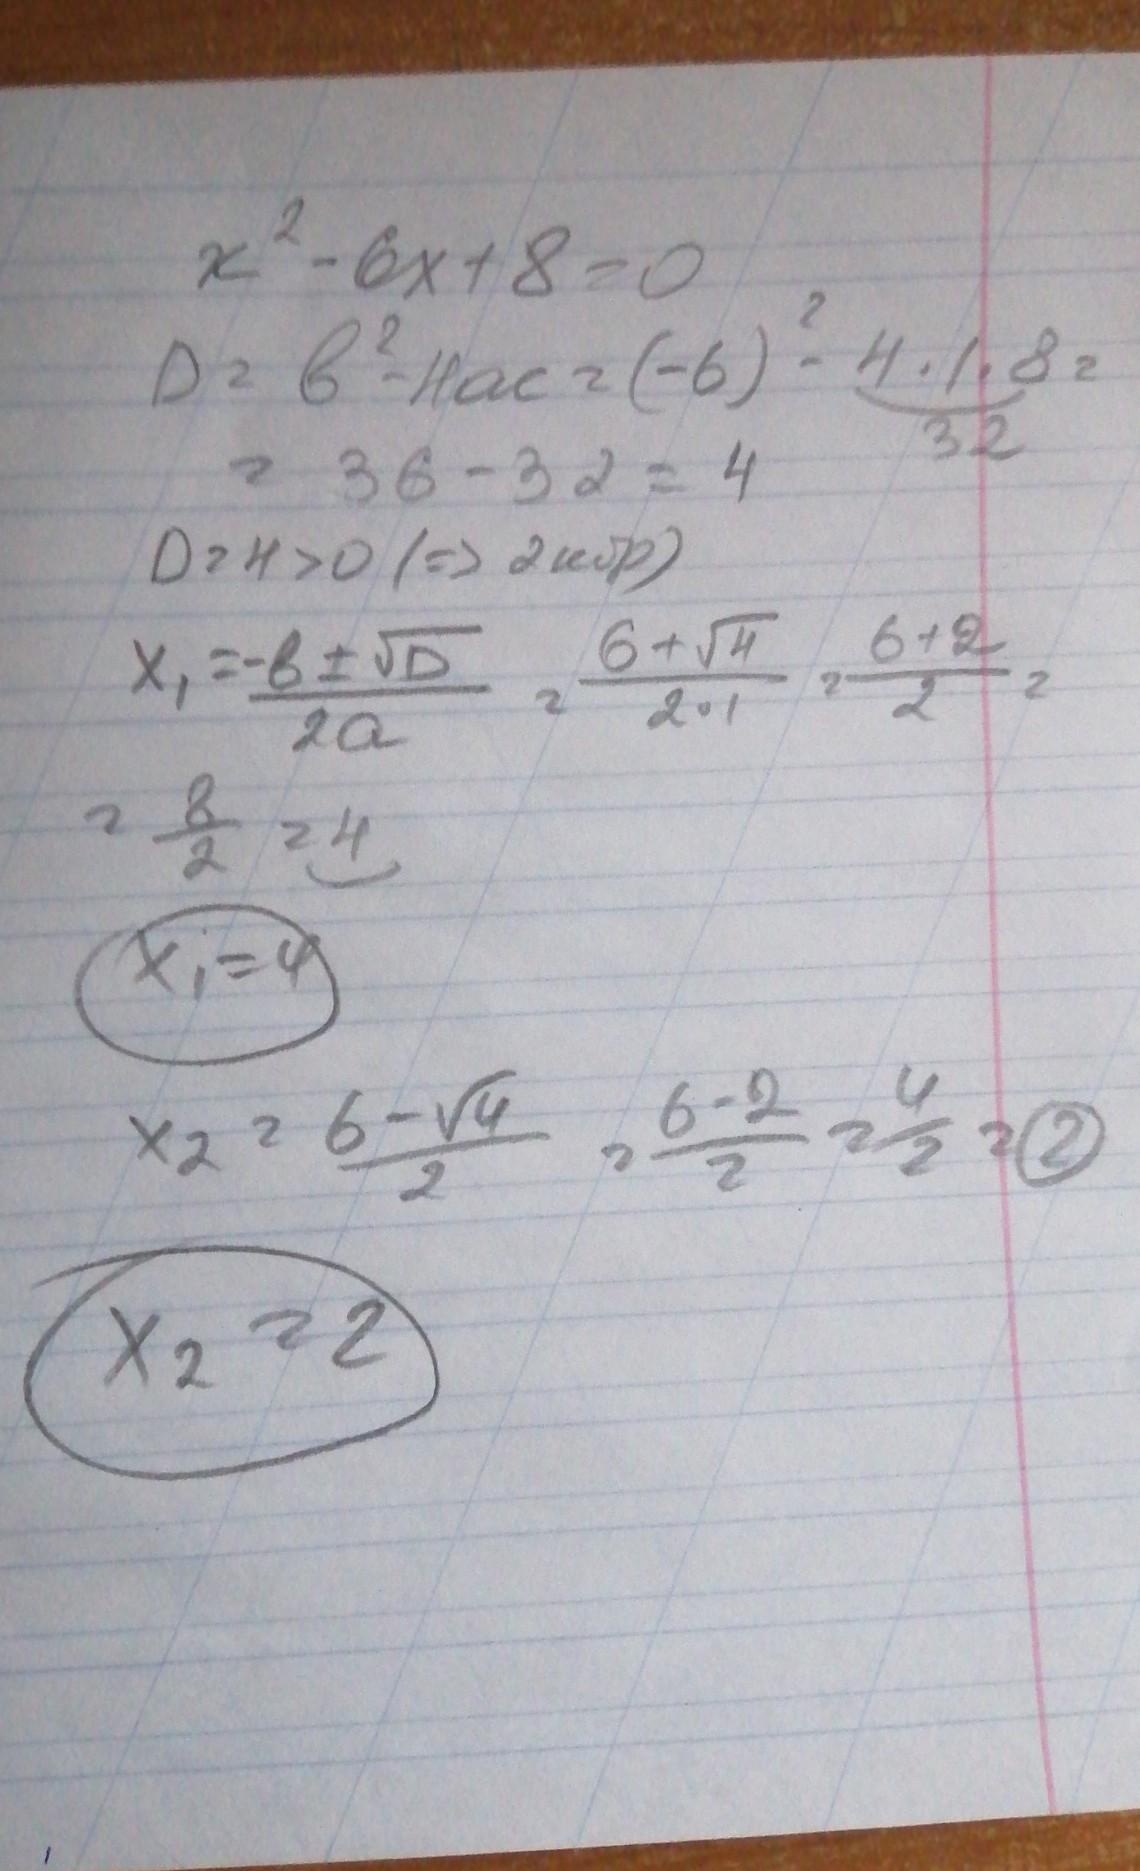 x² - 6x + 8 = 0
D = b² - 4ac = (-6)² - 4 · 1 · 8 =
32
= 36 - 32 = 4
D = 4 > 0 (=> 2 кор)
x₁ = (-b ± √D)/(2a) = (6 + √4)/(2 · 1) = (6 + 2)/2 =
= 8/2 = 4
x₁ = 4
x₂ = (6 - √4)/2 = (6 - 2)/2 = 4/2 = 2
x₂ = 2